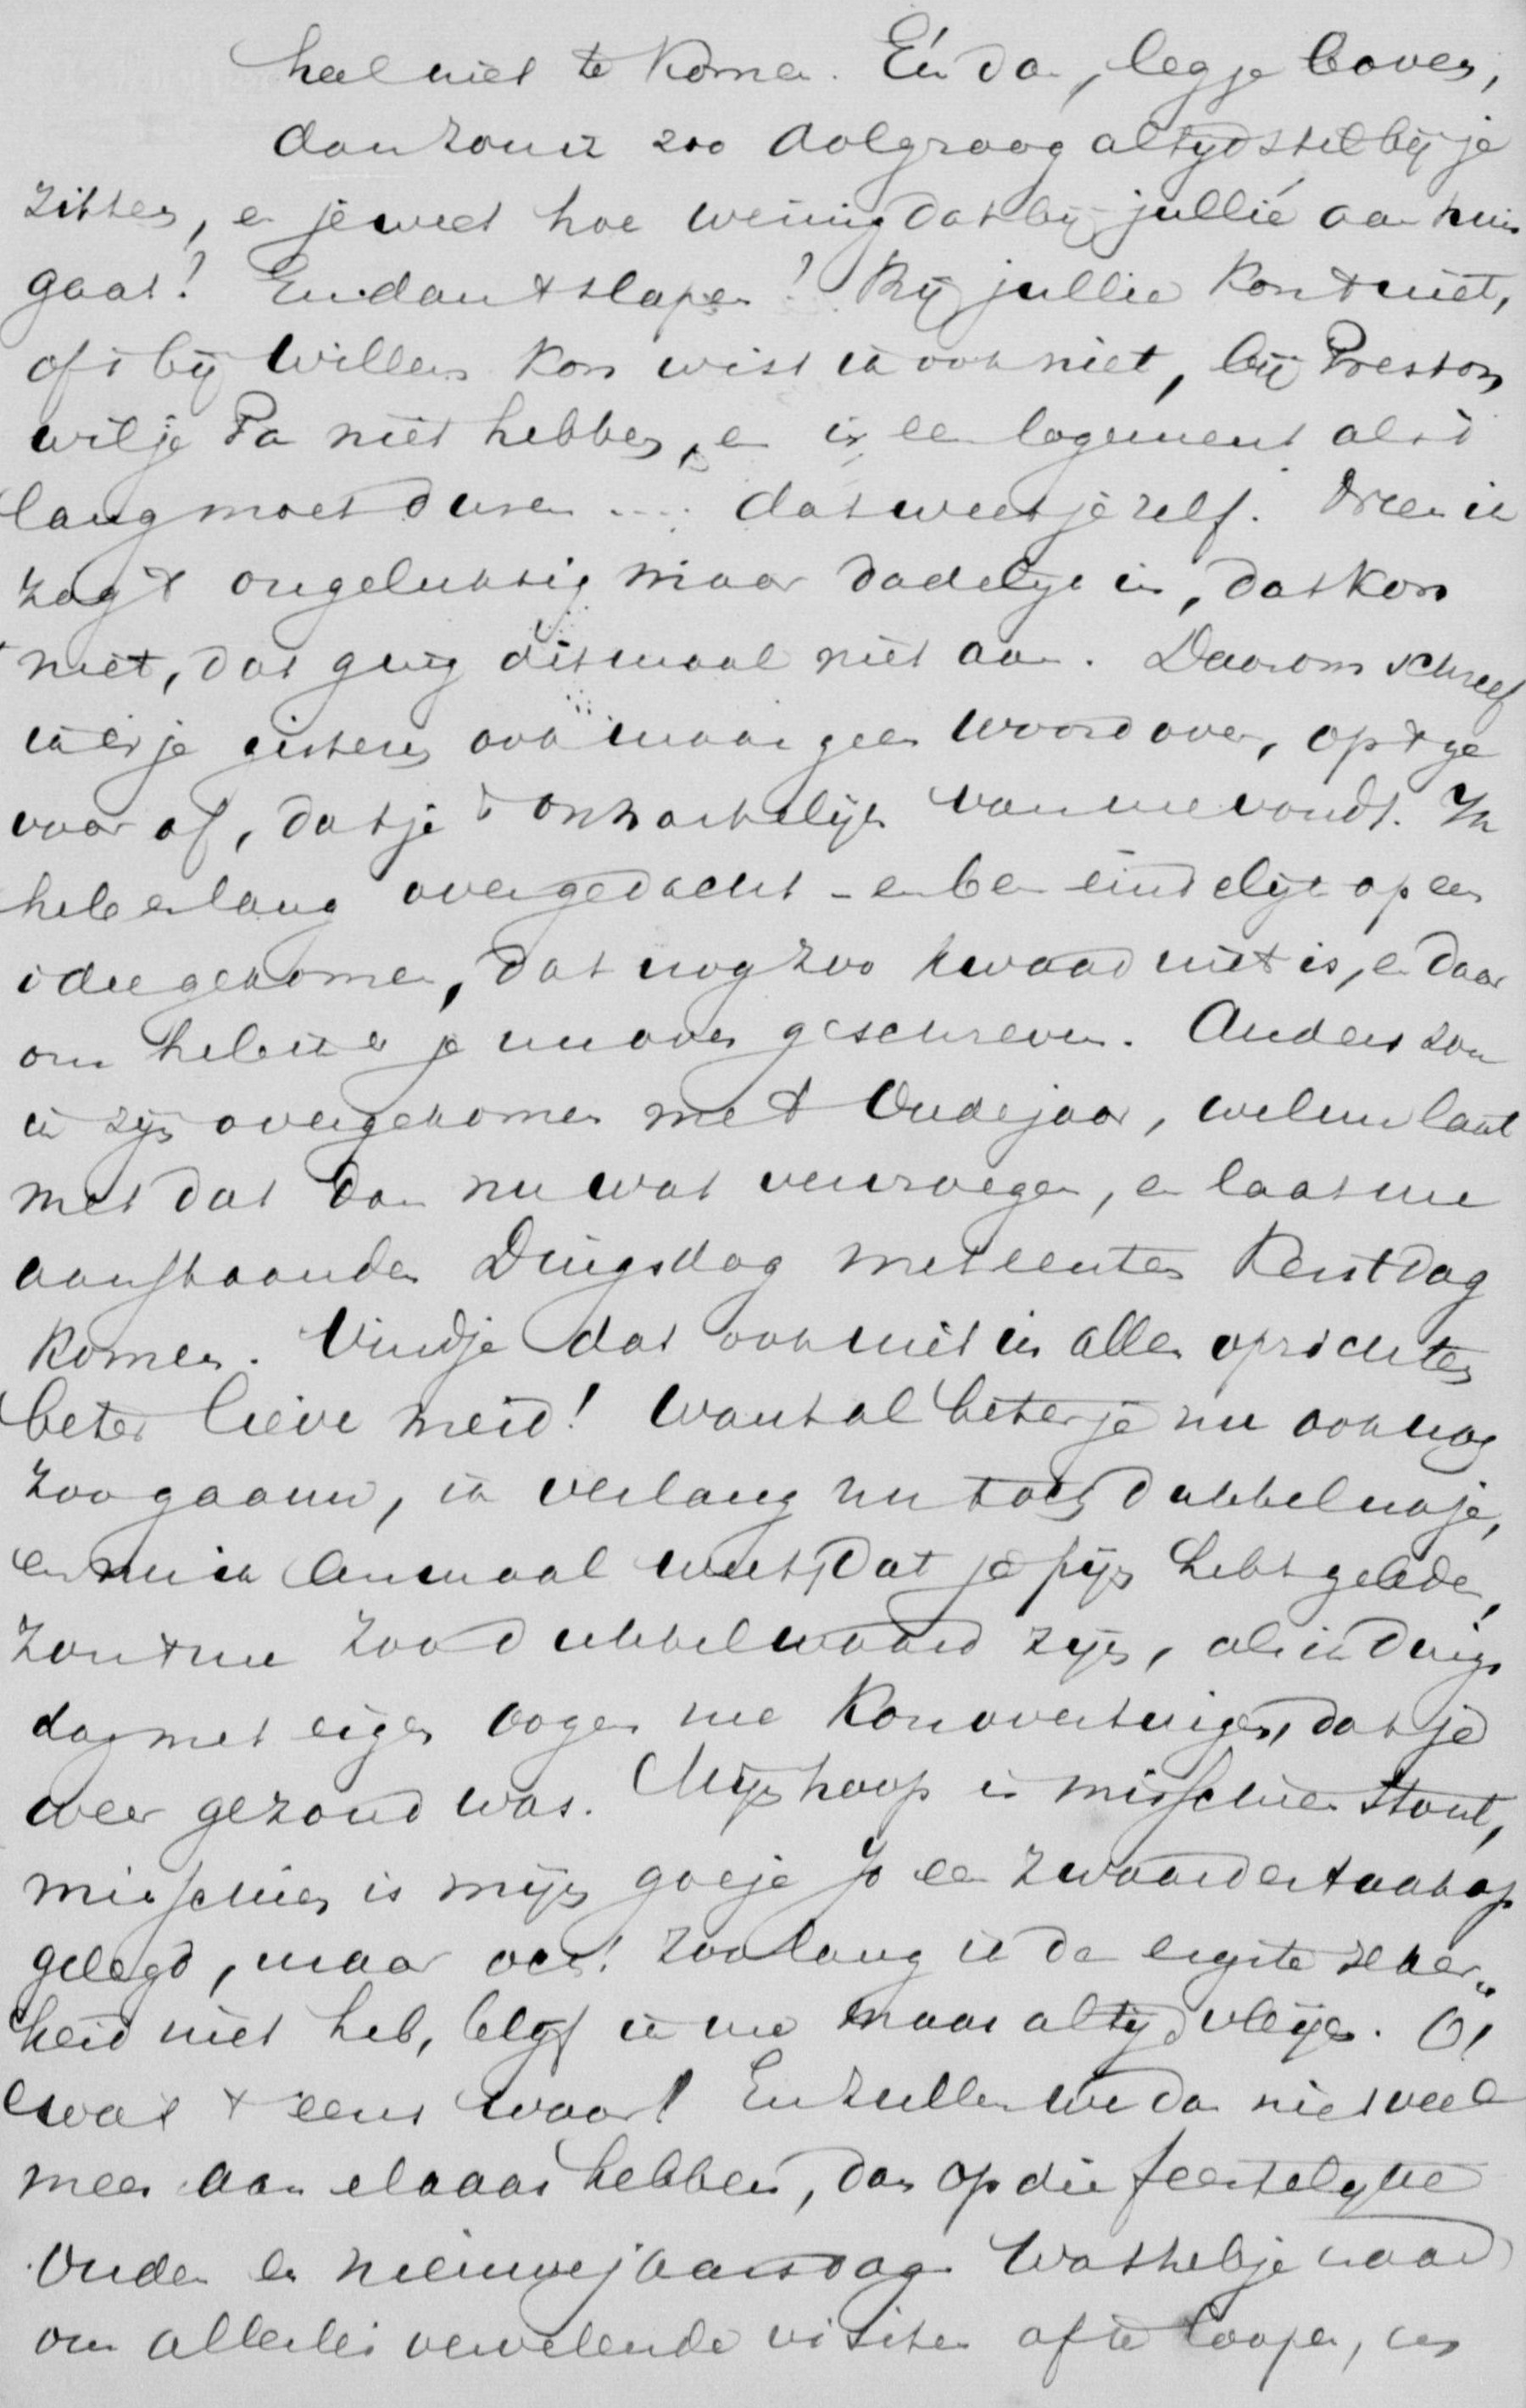 heel niet te komen. En dan, leg je boven,
dan zou ik zoo dolgraag altyd stil bij je
zitten, en je weet hoe weinig dat bij jullie aan huis
gaat! En dan 't slapen! Bij jullie kon 't niet,
of 't bij Willem kon wist ik ook niet, bij Preston
wil je Pa niet hebben, en in een logement als 't
lang moet duren .... dat weet je zelf. Neen ik
zag 't ongelukkig maar dadelijk in, dat kon
niet, dat ging ditmaal niet aan. Daarom schreef
ik er je gisteren ook maar geen woord over, op 't ge
vaar af, dat je 't onhartelijk van me vondt. Ik
heb er lang over gedacht - en ben eindelijk op een
idee gekomen, dat nog zoo kwaad niet is, en daar
om heb ik er je nu over geschreven. Anders zou
ik zijn overgekomen met Oudejaar, welnu laat
me dat dan nu wat vervroegen, en laat me
aanstaanden Dingsdag met eersten Kerstdag
komen. Vindje dat ook niet in alle opzichten
beter lieve meid! Want al beter je nu ook nog
zoo gaauw, ik verlang nu toch dubbel na je,
en nu ik eenmaal weet, dat je pijn hebt geleden,
zou 't me zoo dubbel waard zijn, als ik Dings
dag met eigen oogen me kon overtuigen, dat je
weer gezond was. Mijn hoop is misschien stout,
misschien is mijn goeje Jo een zwaarder taak op
gelegd, maar och! zoolang ik de ergste zeker"
heid niet heb, blijf ik me maar altijd vleijen. O!
was 't eens waar! En zullen we dan niet veel
meer aan elkaar hebben, dan op die feestelijke
Ouden en nieuwejaarsdagen. Wat heb je eraan
om allerlei vervelende visites af te loopen, en